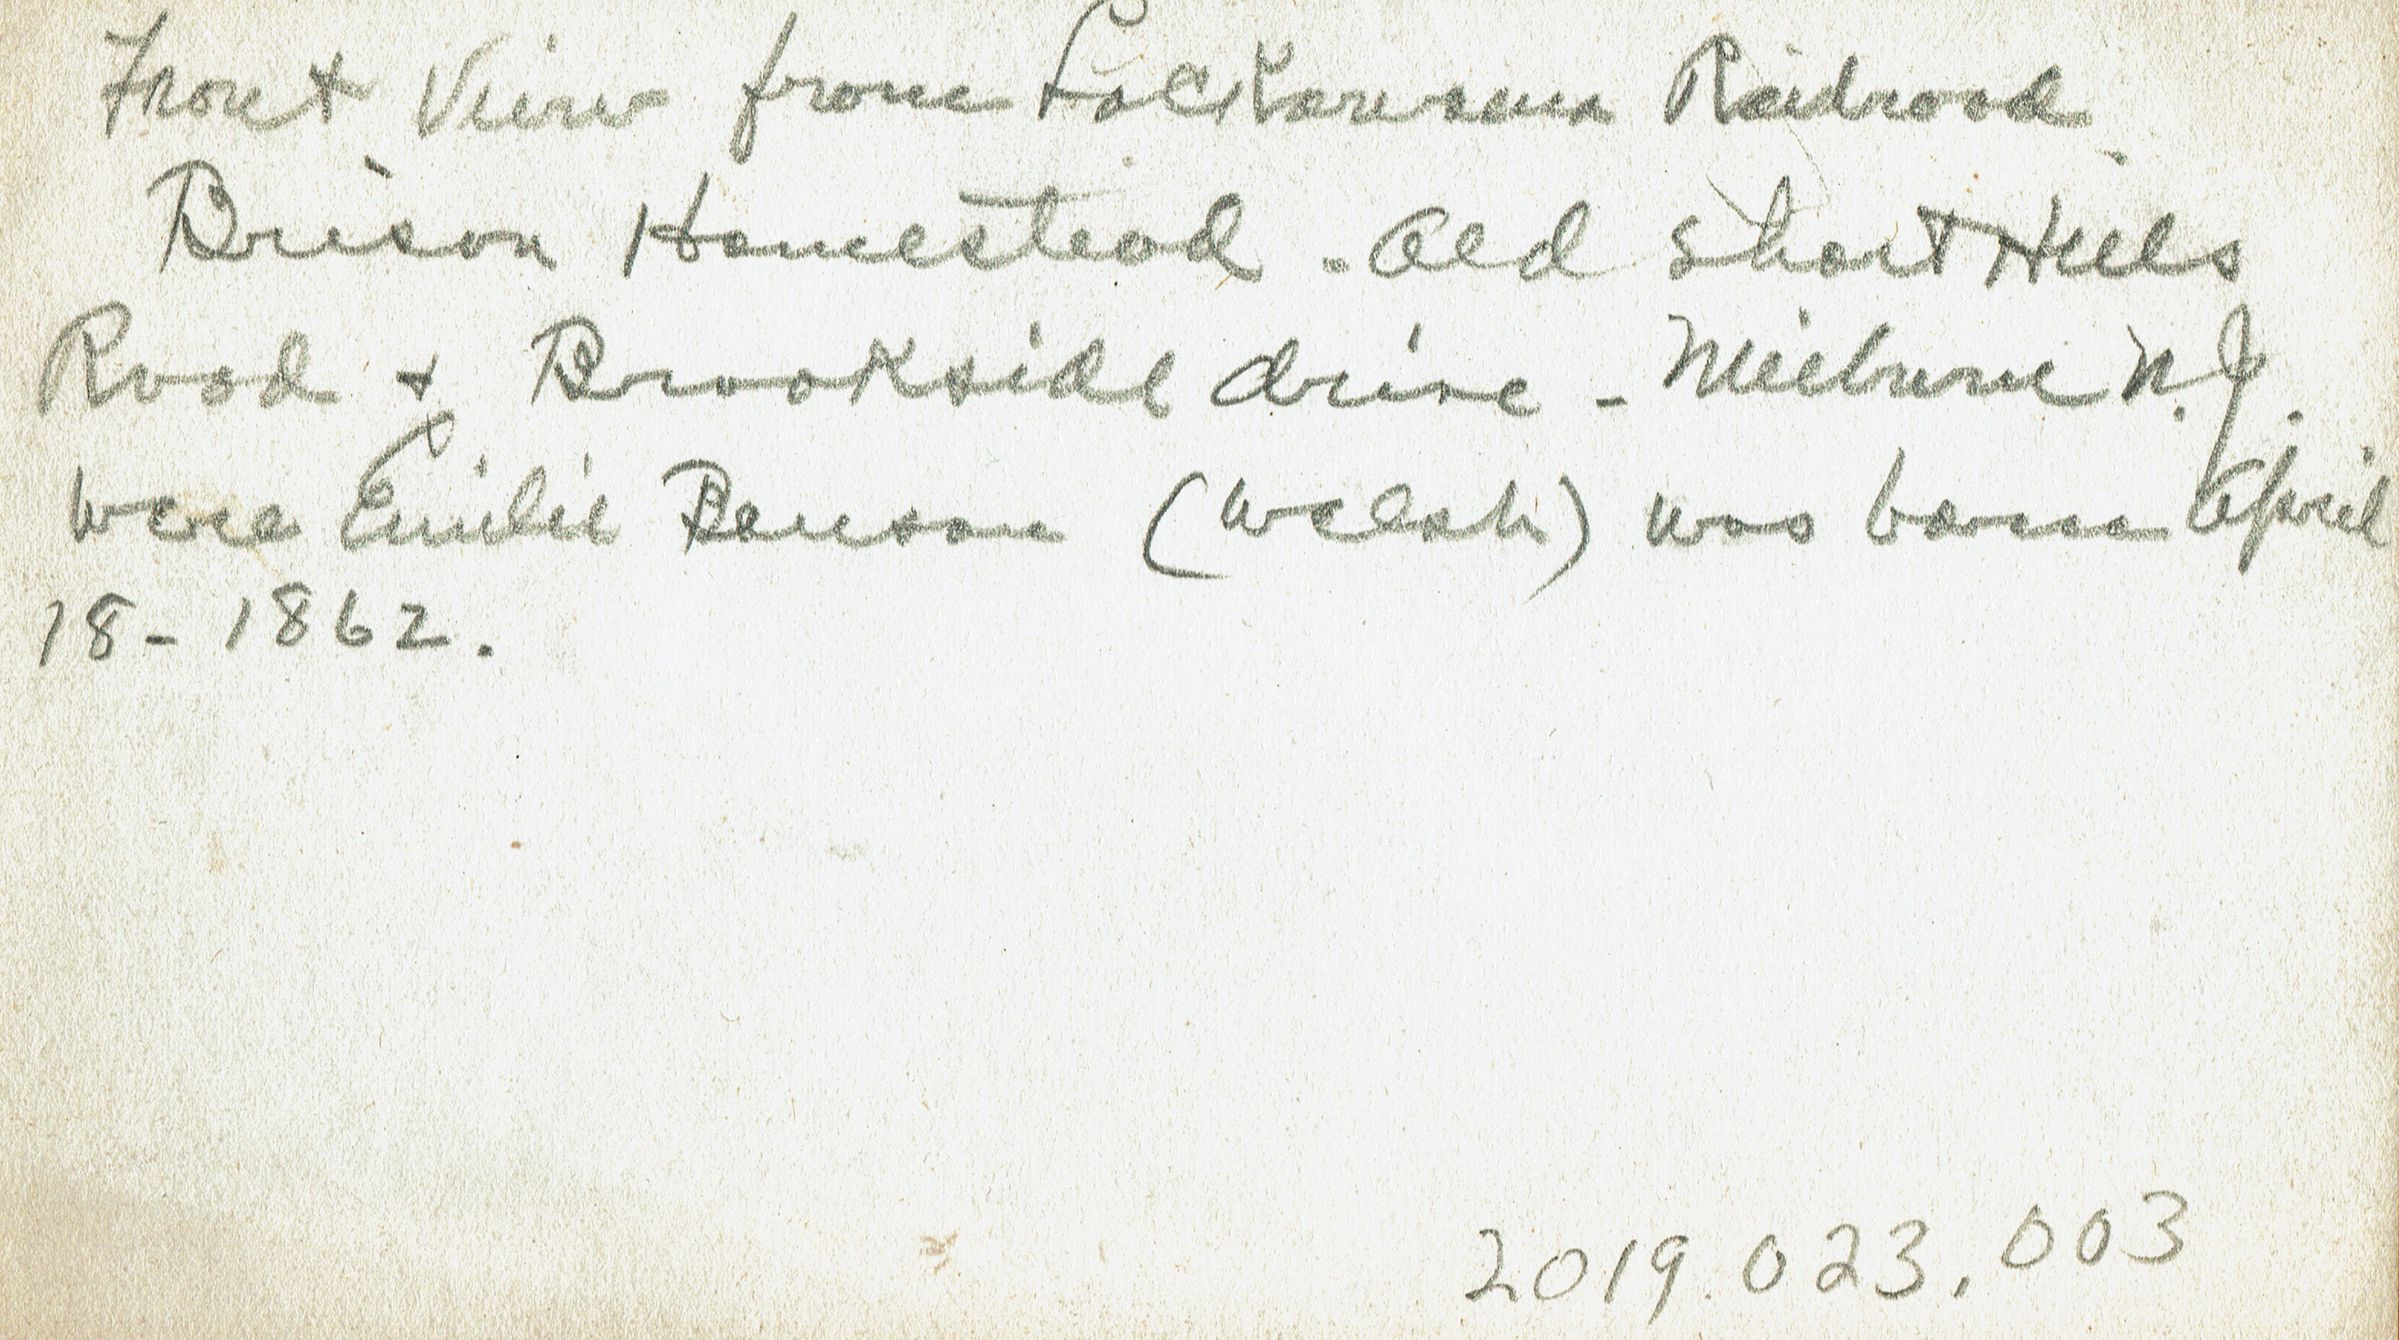 Front View from Lackawanna Railroad
Brison Homestead - Old Short Hills
Road + Brookside drive - Milburne N.J.
were Emilie Benson (Welsh) was borne April
18 - 1862.
2019.023.003